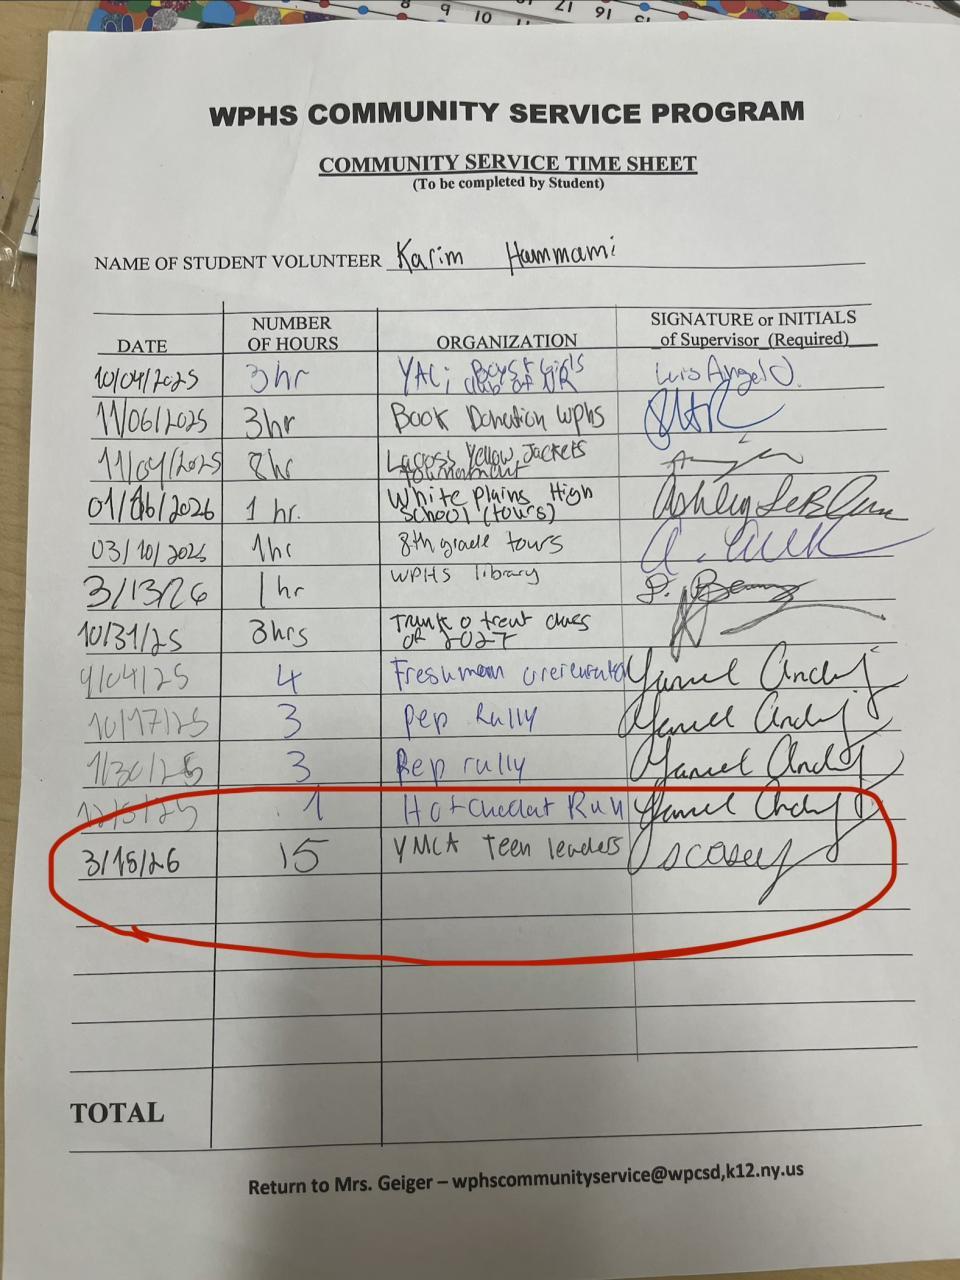 WPHS COMMUNITY SERVICE PROGRAM
COMMUNITY SERVICE TIME SHEET
(To be completed by Student)
NAME OF STUDENT VOLUNTEER Karim Hammami
DATE NUMBER OF HOURS ORGANIZATION SIGNATURE or INITIALS of Supervisor (Required)
10/04/2025 3hr YAC; Boys & Girls club of NR Luis Angel O.
11/06/2025 3hr Book Donation wphs
11/09/2025 8hr Yellow Jackets tournament
01/06/2026 1 hr. White Plains High School (tours) Ashley
03/10/2026 1hr 8th grade tours
3/13/26 1 hr WPHS library
10/31/25 3hrs Trunk o treat class of 2027
9/04/25 4 Freshman
10/17/25 3 pep rally
1/30/26 3 Pep rully
12/5/25 1 Run
3/15/26 15 YMCA Teen leaders scasey
TOTAL
Return to Mrs. Geiger – wphscommunityservice@wpcsd,k12.ny.us